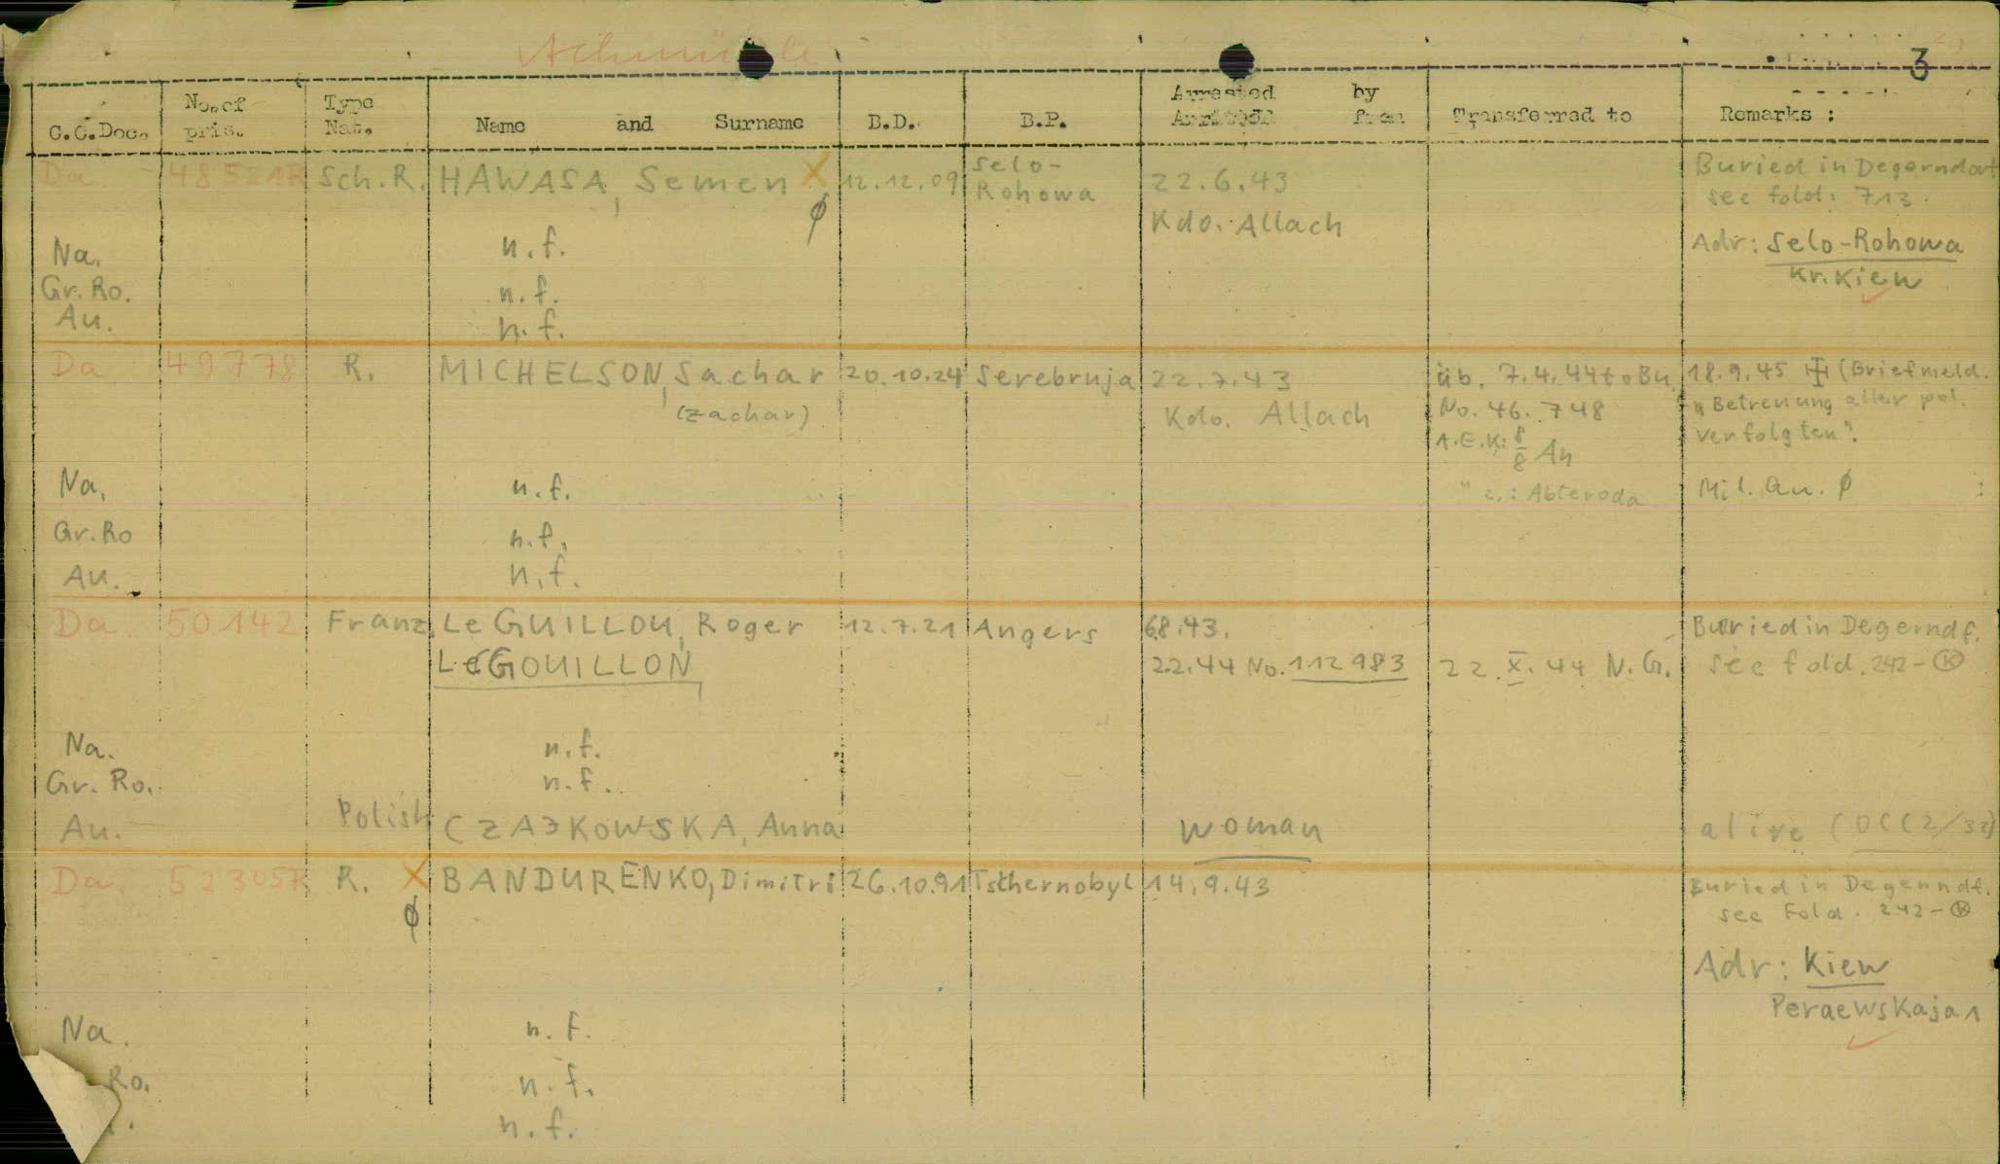 Achmühle
3
C.C.Doc. No. of pris. Type Nat. Name and Surname B.D. B.P. Arrested by Arrived from Transferred to Remarks :
Da 48521R Sch.R. HAWASA, Semen X 12.12.09 Selo- 22.6.43 Buried in Degerndorf
Rohowa see fold: 713.
ø Kdo. Allach
Na. n.f. Adr: Selo-Rohowa
Kr. Kiew
Gr. Ro. n.f.
Au. n.f.
Da 49778 R. MICHELSON, Sachar 20.10.24 Serebruja 22.7.43 üb. 7.4.44 to Bu. 18.9.45 (Briefmeld.
(Zachar) Kdo. Allach No. 46.748 "Betreuung aller pol.
A.E.K: 8/8 An verfolgten".
Na. n.f. " z.: Abteroda Mil. Au. ø
Gr. Ro n.f.
Au. n.f.
Da. 50142 Franz. Le GUILLOU, Roger 12.7.21 Angers 6.8.43. Buried in Degerndf.
Le GOUILLON 22.44 No. 112983 22.X.44 N.G. see fold. 242-K
Na. n.f.
Gr. Ro. n.f.
Au. Polish CZAJKOWSKA, Anna woman alive (OCC2/32)
Da. 52305R R. X BANDURENKO, Dimitri 26.10.91 Tschernobyl 14.9.43 Buried in Degerndf.
ø see Fold. 242-K
Adr: Kiew
Peraewskaja 1
Na. n.f.
Ro. n.f.
n.f.